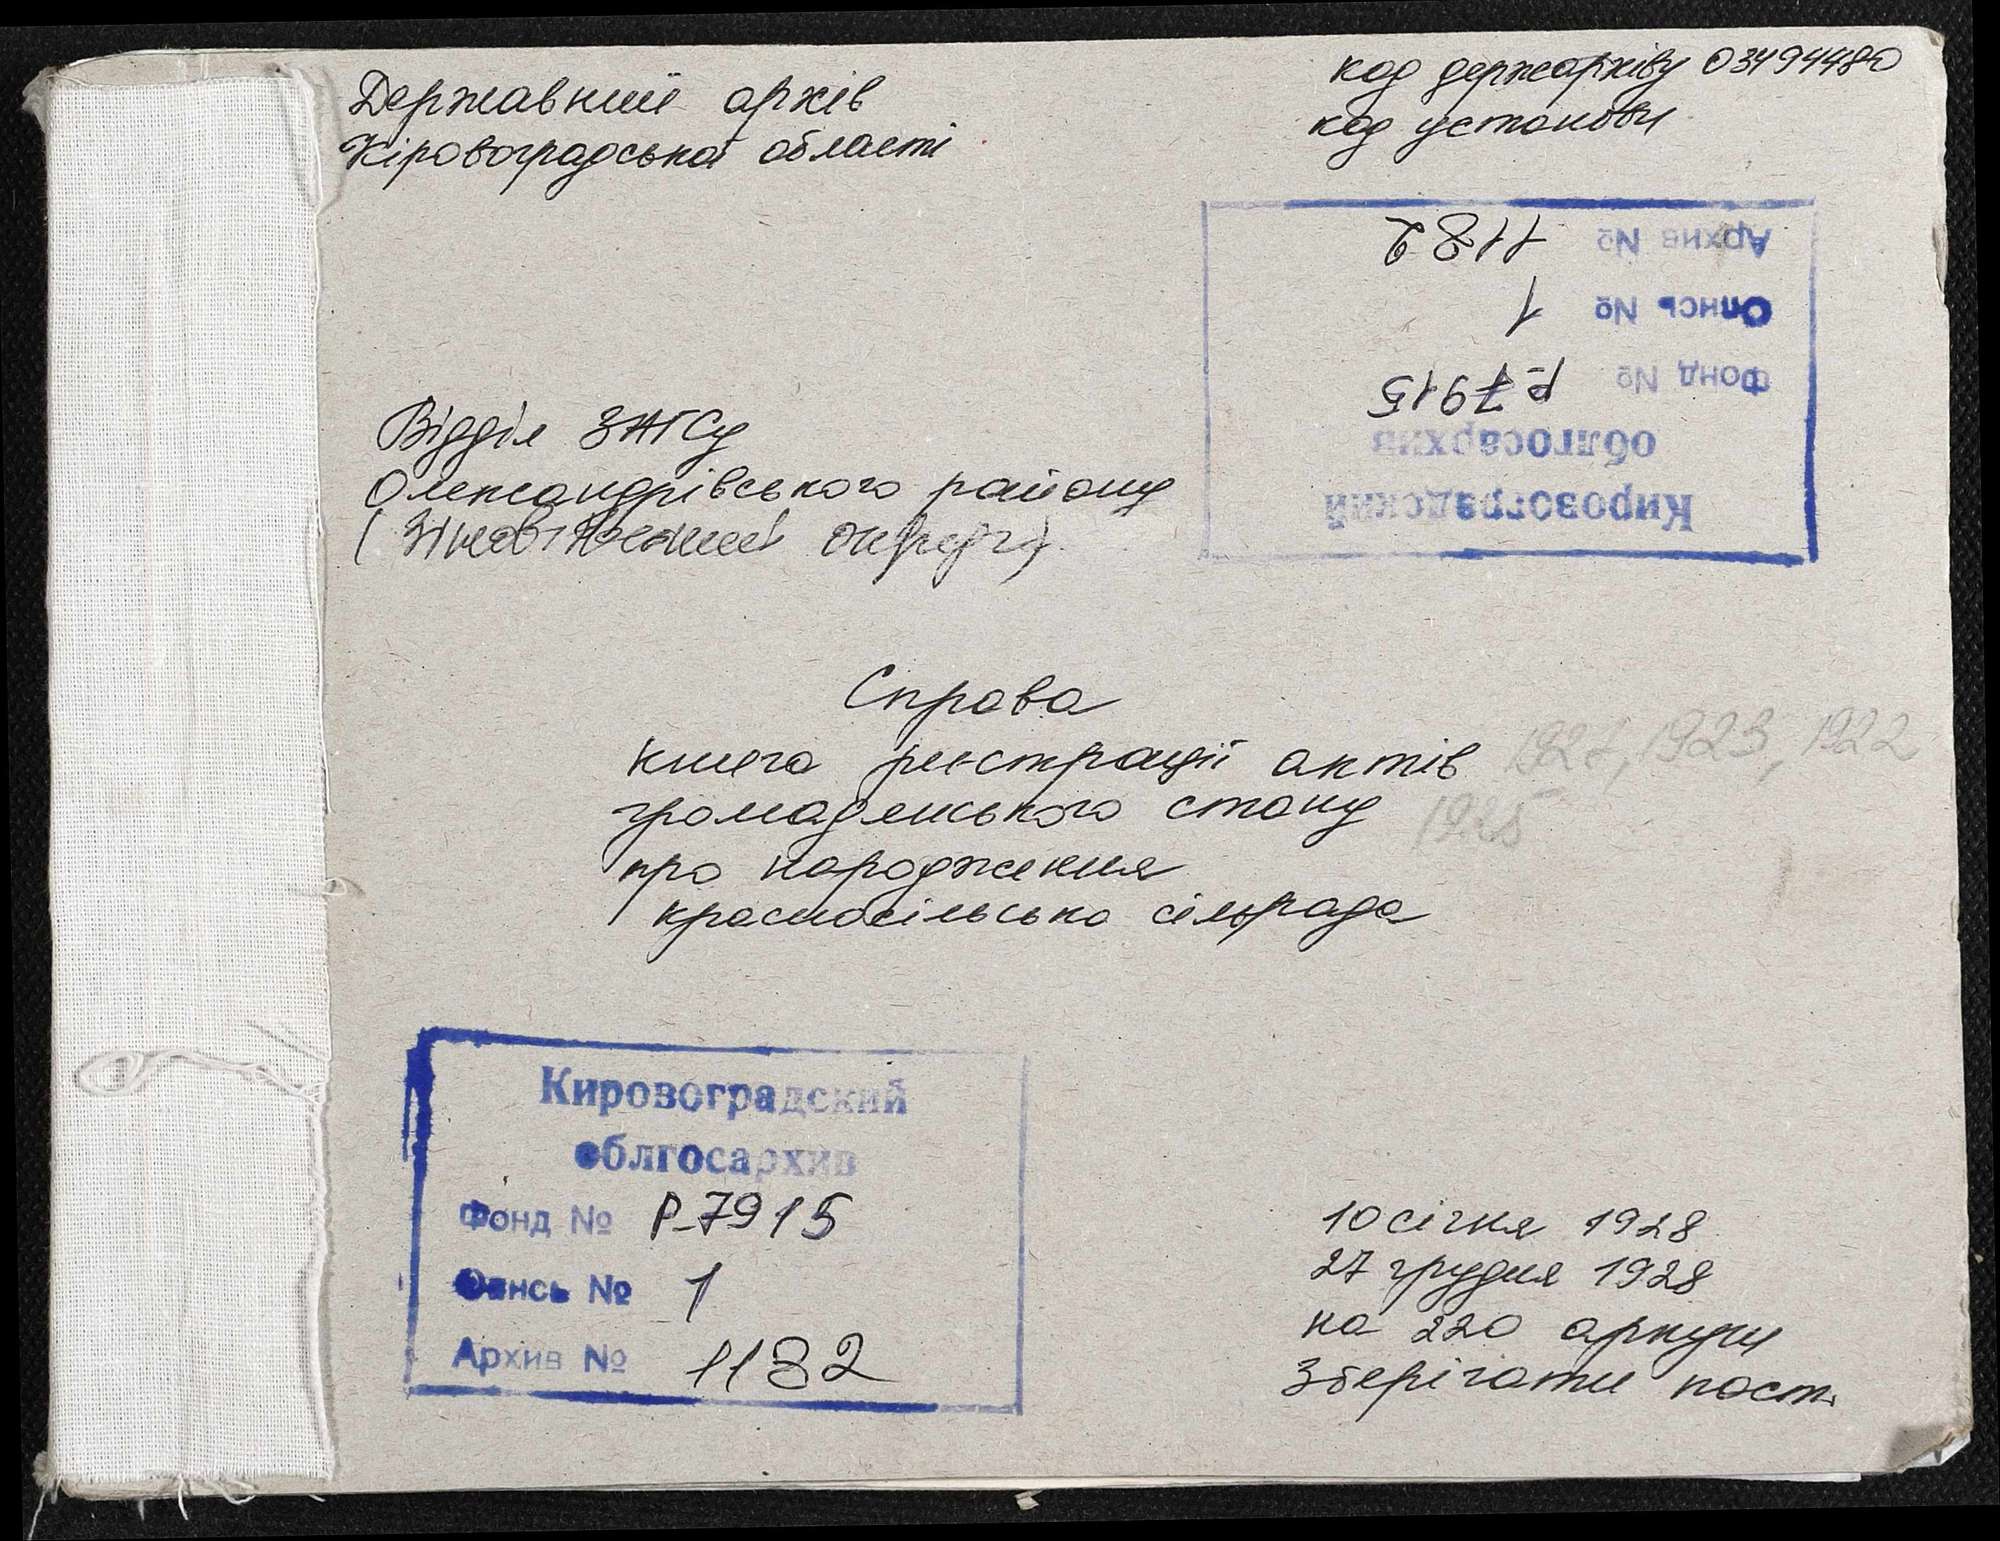 Державний архів
Кіровоградської області
код держархіву 03494480
код установи
Архив № 1182
Опись № 1
Фонд № Р-7915
облгосархив
Кировоградский
Відділ ЗАГСу
Олександрівського району
(Зінов'ївської округи)
Справа
книга реєстрації актів
1923, 1922
громадянського стану
1925
про народження
красносільська сільрада
Кировоградский
облгосархив
Фонд № Р-7915
Опись № 1
Архив № 1182
10 січня 1928
27 грудня 1928
на 220 аркуши
Зберігати пост.